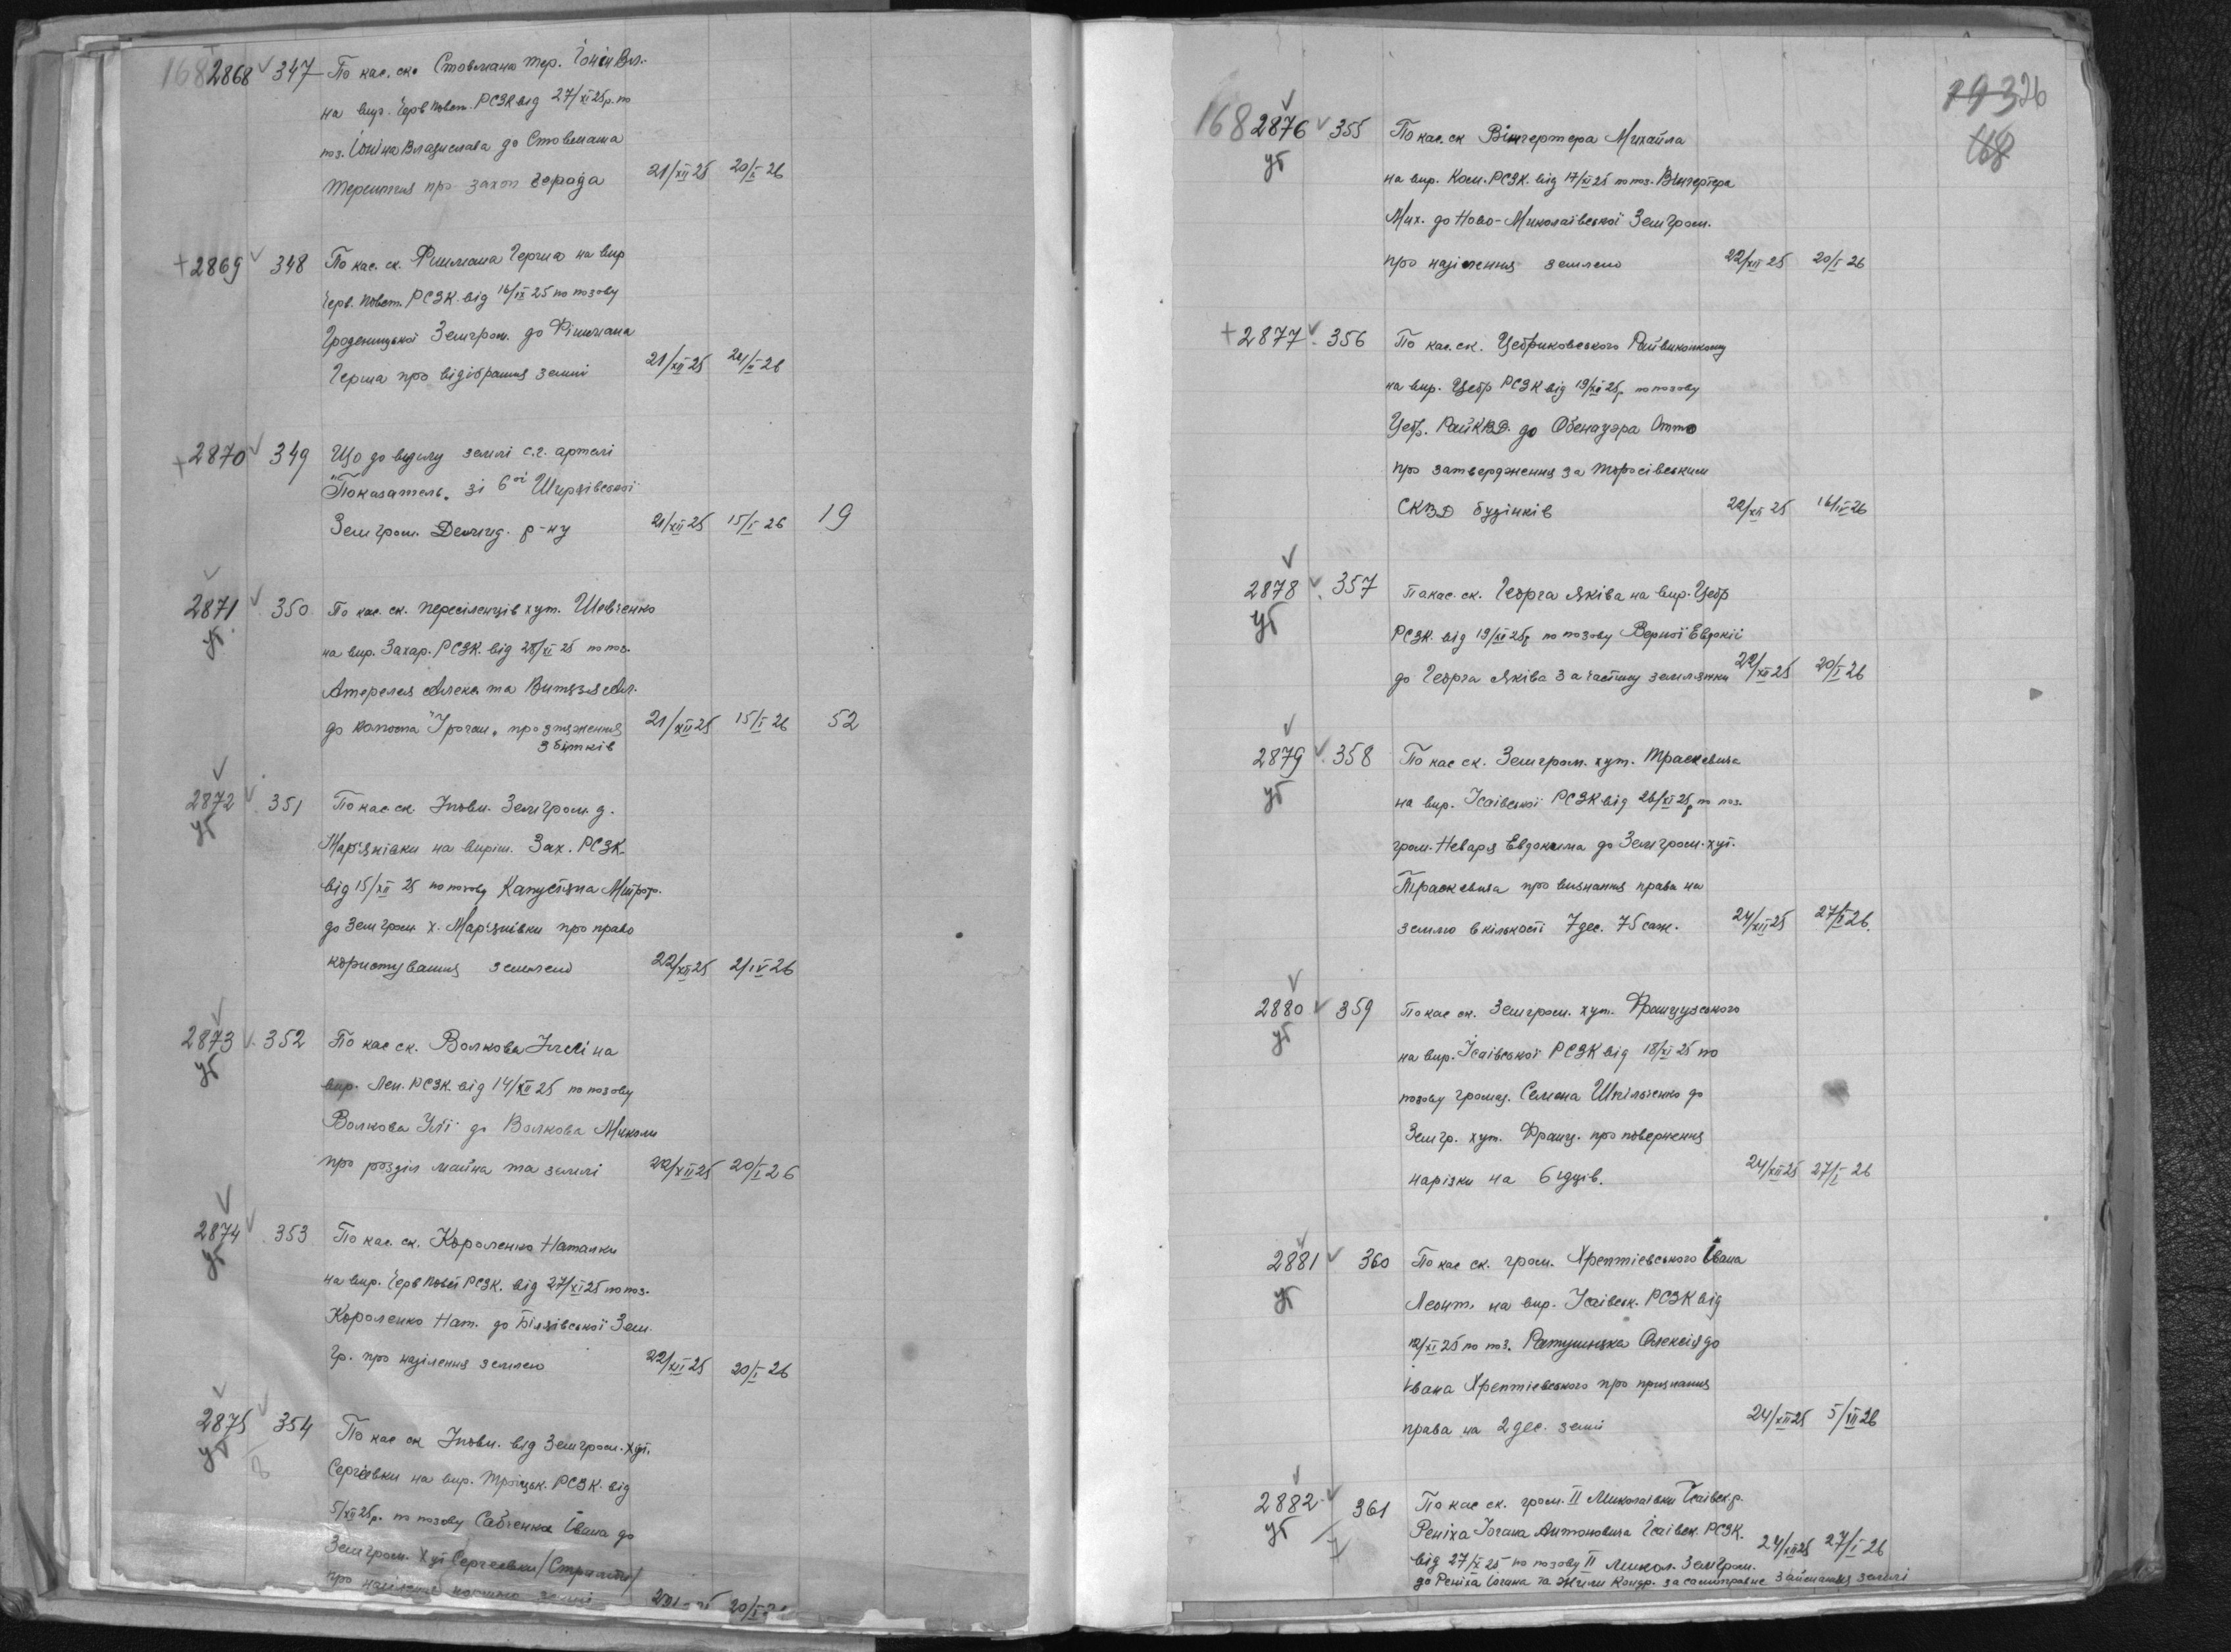 168 2868 347 По кас. ск. Стовмана тер. Іоніна Вл.
на вир. Черв Повст. РСЗК від 27/XI 25р. по
поз. Іоніна Владислава до Стовмана
Терентия про захоп города 21/XII 25 20/I 26
+ 2869 348 По кас. ск. Фішмана Герша на вир
Черв. Повст. РСЗК від 16/IX 25 по позову
ГроденицькоїЗемгром. до Фішмана
Герша про відібрання землі 21/XII 25 26
+ 2870 349 Що до виділу землі с.г. артелі
"Показатель" зі 6ої Ширяївської
Земгром. р-ну 21/XII 25 15/I 26 19
2871 350 По кас. ск. пересіленців хут. Шевченко
уб на вир. Захар. РСЗК. від 28/XI 25 по поз.
та
до " " про стягнення 21/XII 25 15/I 26 52
збитків
2872 351 По кас. ск. Уповн. Земгром. д.
уб Мар'янівки на виріш. Зах. РСЗК.
від 15/XII 25 по позову Капустяна Митроф.
до Земгром х. Мар'янівки про право
користування землею 22/XII 25 2/IV 26
2873 352 По кас ск. Волкова Іллі на
уб вир. Лен. РСЗК. від 14/XII 25 по позову
Волкова Іллі до Волкова Миколи
про розділ майна та землі 22/XII 25 20/I 26
2874 353 По кас. ск. Короленко Наталки
уб на вир. Черв Повст РСЗК. від 27/XI 25 по поз.
Короленко Нат. до Біляївської Зем.
Гр. про наділення землею 22/XII 25 20/I 26
2875 354 По кас ск Уповн. від Земгром. хут.
уб Сергієвки на вир. Троїцьк. РСЗК. від
5/XII 25р. по позову Савченка Івана до
Земгром. Хут Сергеевки /
про землі 20/I
193 26
168
168 2876 355 По кас. ск Вінгертера Михайла
уб на вир. Ком. РСЗК. від 17/XI 25 по поз. Вінгертера
Мих. до Ново-Миколаївської Земгром.
про наділення землею 22/XII 25 20/I 26
+ 2877 356 По кас. ск. Цебриковського Райвиконкому
на вир. Цебр РСЗК від 19/XI 25р по позову
Цебр. РайКВД. до Обенауэра Отто
про затвердження за Торосівським
СКВД будінків 22/XII 25 16/IV 26
2878 357 По кас. ск. Георга Яківа на вир. Цебр
уб РСЗК. від 19/XI 25р по позову Верної Евдокії
до Георга Яківа за частину землянки 22/XII 25 20/I 26
2879 358 По кас ск. Земгром. хут. Траскевича
уб на вир. Ісаївської РСЗК від 26/XI 25р по поз.
гром. Неваря Евдокима до Земгром. хут.
Траскевича про визнання права на
землю в кількості 7 дес. 75 саж. 24/XII 25 27/I 26.
2880 359 По кас ск. Земгром. хут. Французского
уб на вир. Ісаївської РСЗК від 18/XI 25 по
позову громад. Семена Шпільченко до
Земгр. хут. Франц. про повернення
нарізки на 6 їдців. 24/XII 25 27/I 26
2881 360 По кас ск. гром. Хрептіевського Івана
уб Леонт. на вир. Ісаївськ. РСЗК від
12/XI 25 по поз. Ратушняка Олексія до
Івана Хрептіевського про признання
права на 2 дес. землі 24/XII 25 5/III 26
2882 361 По кас ск. гром. II Миколаївки Ісаївск р.
уб Реніха Іогана Антоновича Ісаівск. РСЗК.
від 27/X 25 по позову II Микол. Земгром. 24/XII 25 27/I 26
до Реніха Іогана та Кондр. за самоправне займання землі